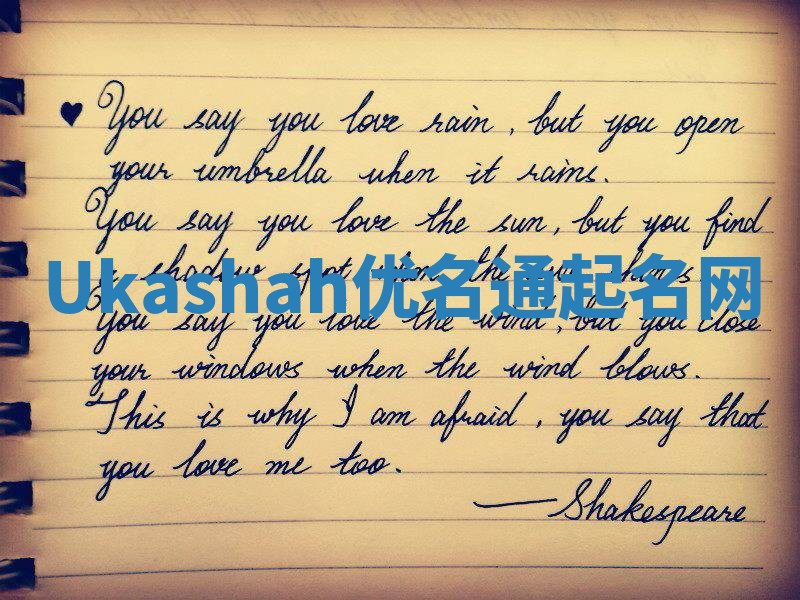 You say you love rain, but you open
your umbrella when it rains.
You say you love the sun, but you find
a shadow spot when the sun shines
Ukashah优名通起名网
You say you love the wind, but you close
your windows when the wind blows.
This is why I am afraid, you say that
you love me too.
—Shakespeare